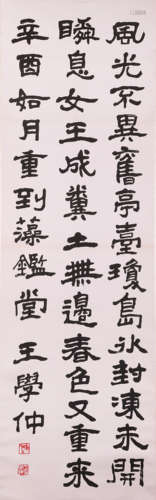 風光不異舊亭臺瓊島冰封凍未開
瞬息女王成糞土無邊春色又重来
辛酉如月重到藻鑑堂 王學仲